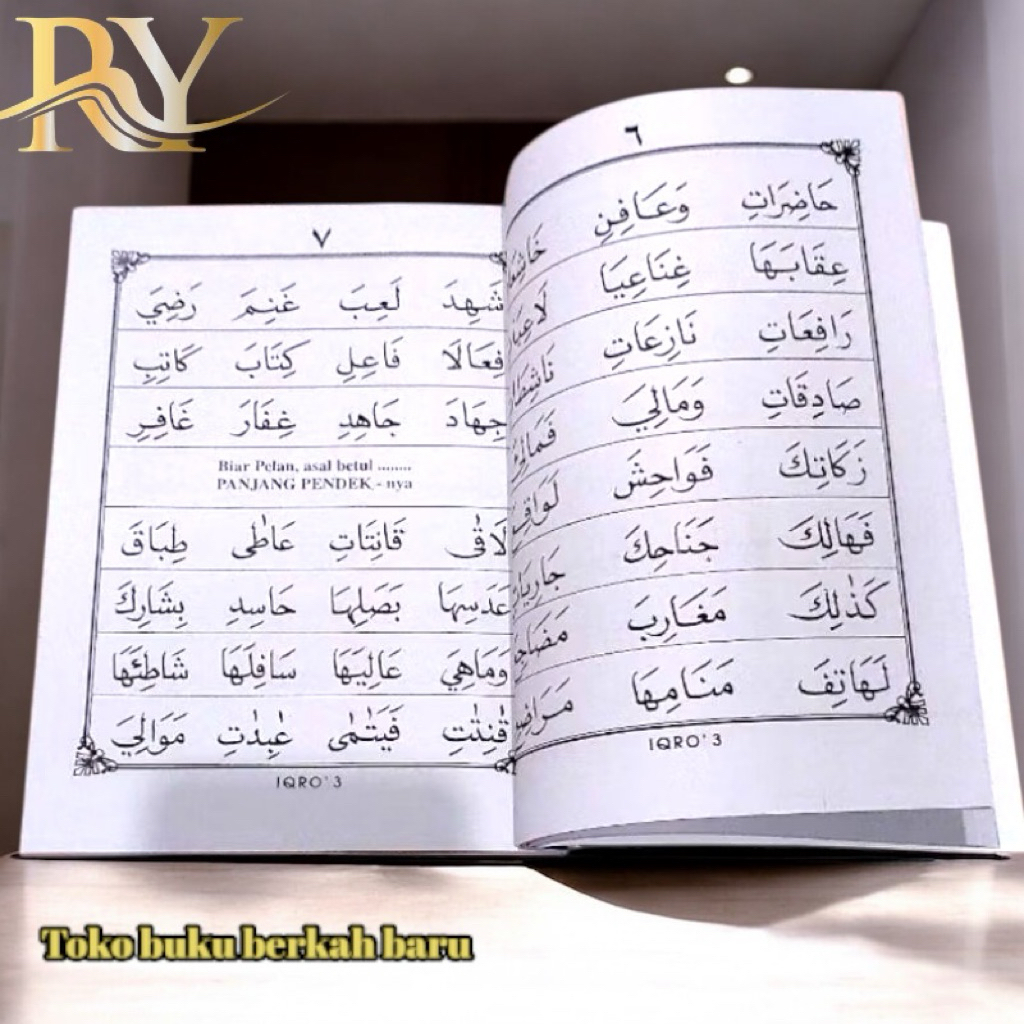 RY
٦
حَاضِرَاتِ وَعَافِنِ
عِقَابَهَا غِنَاعِيَا
رَافِعَاتِ نَازِعَاتِ
صَادِقَاتِ وَمَالِيَ
زَكَاتِكَ فَوَاحِشَ
فَهَالِكَ جَنَاحِكَ
كَذٰلِكَ مَغَارِبَ
لَهَاتِفَ مَنَامِهَا
IQRO' 3
٧
شَهِدَ لَعِبَ غَنِمَ رَضِيَ
فِعَالَا فَاعِلِ كِتَابَ كَاتِبِ
جِهَادَ جَاهِدِ غِفَارَ غَافِرِ
Biar Pelan, asal betul ........
PANJANG PENDEK - nya
لَاقٰى قَانِتَاتِ عَاطٰى طِبَاقَ
عَدَسِهَا بَصَلِهَا حَاسِدِ بِشَارِكَ
وَمَاهِيَ عَالِيَهَا سَافِلَهَا شَاطِئَهَا
قٰنِتٰتِ فَيَتٰمٰى عٰبِدٰتِ مَوَالِيَ
IQRO' 3
Toko buku berkah baru